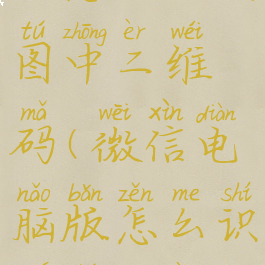 tú zhōng èr wéi
图中二维
mǎ wēi xìn diàn
码(微信电
nǎo bǎn zěn me shí
脑版怎么识